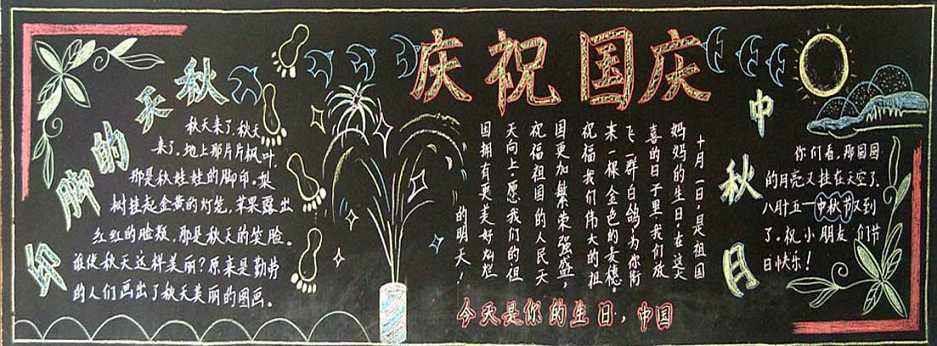 秋天的脚印
秋天来了,秋天
来了,地上那片片枫叶,
那是秋娃娃的脚印,梨
树挂起金黄的灯笼,苹果露出
红红的脸颊,那是秋天的笑脸。
谁使秋天这样美丽?原来是勤劳
的人们画出了秋天美丽的图画。
庆祝国庆
十月一日是祖国
妈妈的生日,在这大
喜的日子里我们放
飞一群白鸽为你衔
来一棵金色的麦穗,
祝福我们伟大的祖
国更加繁荣强盛,
祝福祖国的人民天
天向上,愿我们的祖
国拥有更美好灿烂
的明天!
今天是你的生日,中国
中秋月
你们看,那圆圆
的月亮又挂在天空了,
八月十五—中秋节又到
了,祝小朋友们节
日快乐!